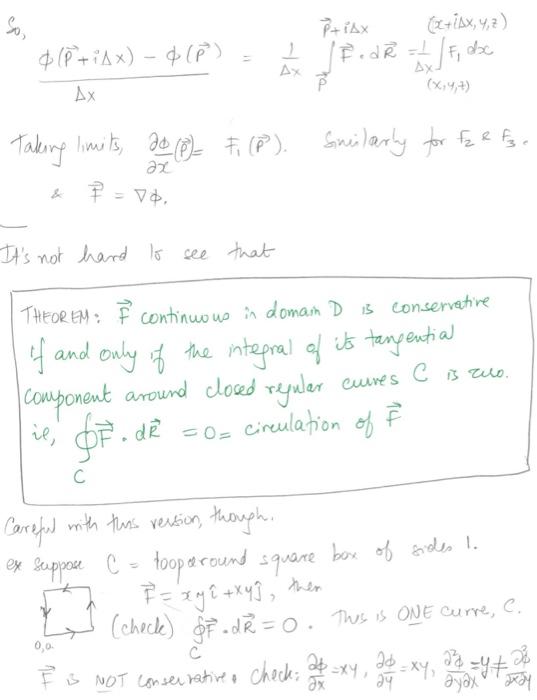 So,
ϕ(P⃗+îΔx) − ϕ(P⃗) / Δx = 1/Δx ∫_{P⃗}^{P⃗+îΔx} F⃗·dR⃗ = 1/Δx ∫_{(x,y,z)}^{(x+iΔx,y,z)} F₁ dx
Taking limits, ∂ϕ/∂x (P⃗) = F₁(P⃗). Similarly for F₂ & F₃.
& F⃗ = ∇ϕ.
It's not hard to see that
THEOREM: F⃗ continuous in domain D is conservative
if and only if the integral of its tangential
component around closed regular curves C is zero.
ie, ∮_C F⃗·dR⃗ = 0 = circulation of F⃗
Careful with this version, though.
ex Suppose C = loop around square box of sides 1.
F⃗ = xyî + xyĵ, then
(check) ∮_C F⃗·dR⃗ = 0. This is ONE curve, C.
0,0
F⃗ is NOT conservative. Check: ∂ϕ/∂x = xy, ∂ϕ/∂y = xy, ∂²ϕ/∂y∂x = y ≠ ∂²ϕ/∂x∂y